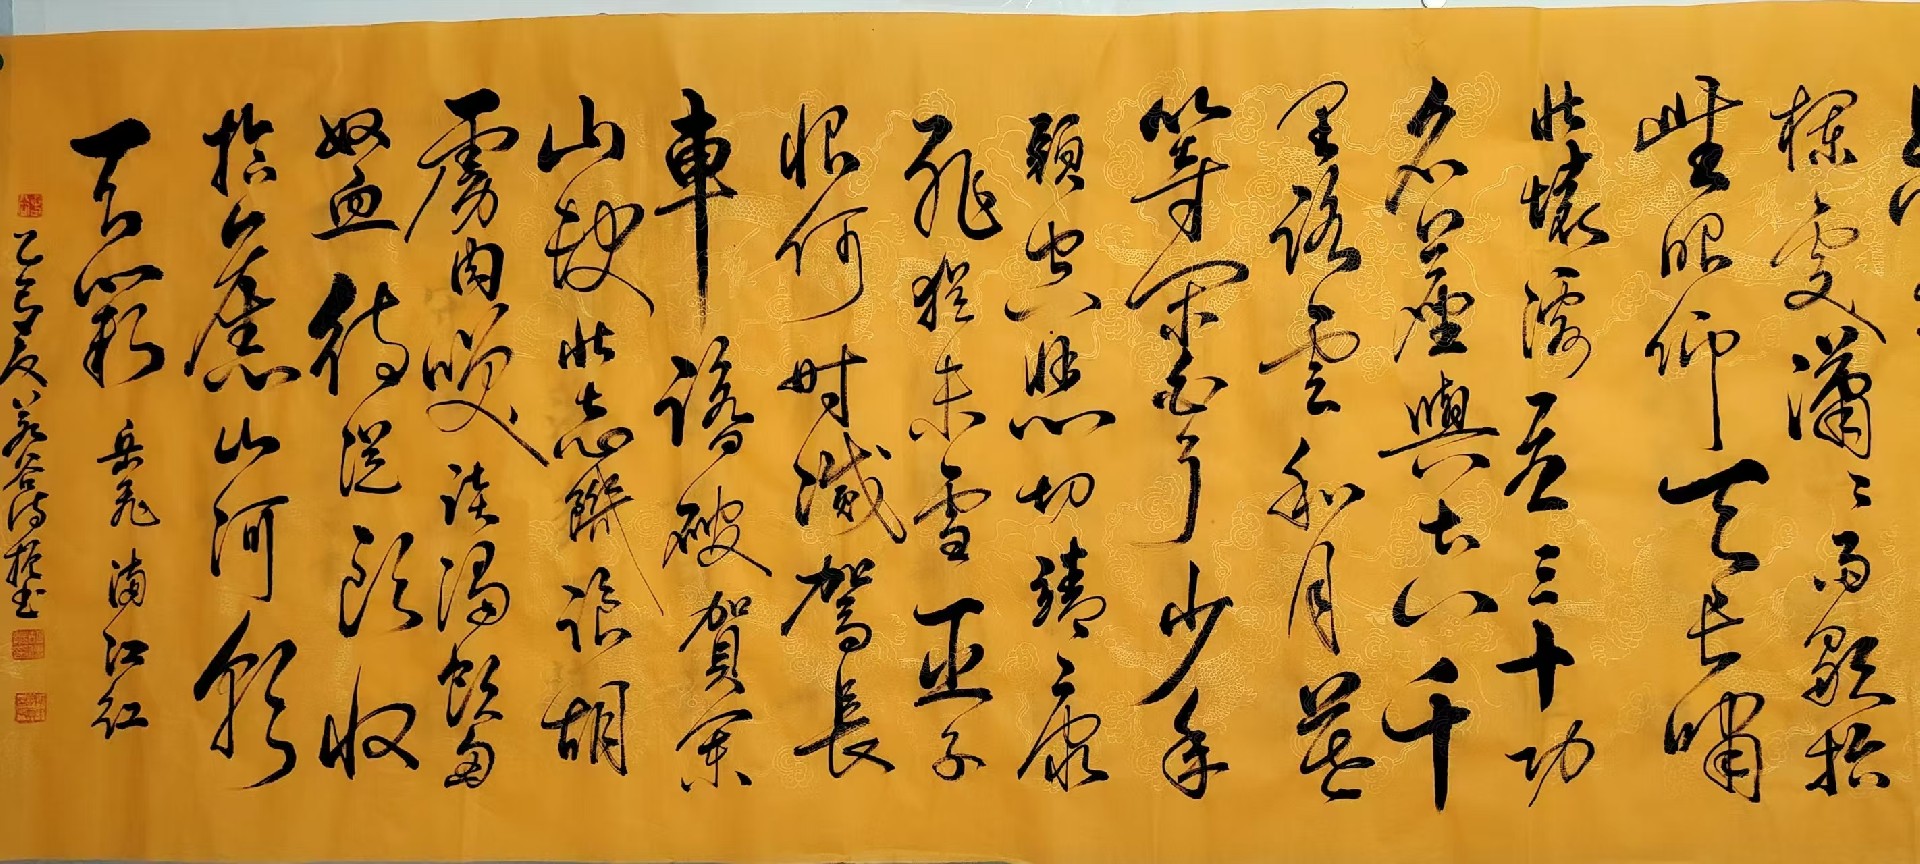 欄處瀟〻雨歇抬
望眼仰天長嘯
壯懷激烈三十功
名塵與土八千
里路雲和月莫
等閑白了少年
頭空悲切靖康
恥猶未雪臣子
恨何時滅駕長
車踏破賀蘭
山缺壯志飢餐胡
虜肉笑談渴飲匈
奴血待從頭收
拾舊山河朝
天闕 岳飛 滿江紅
乙巳夏 谷 振書